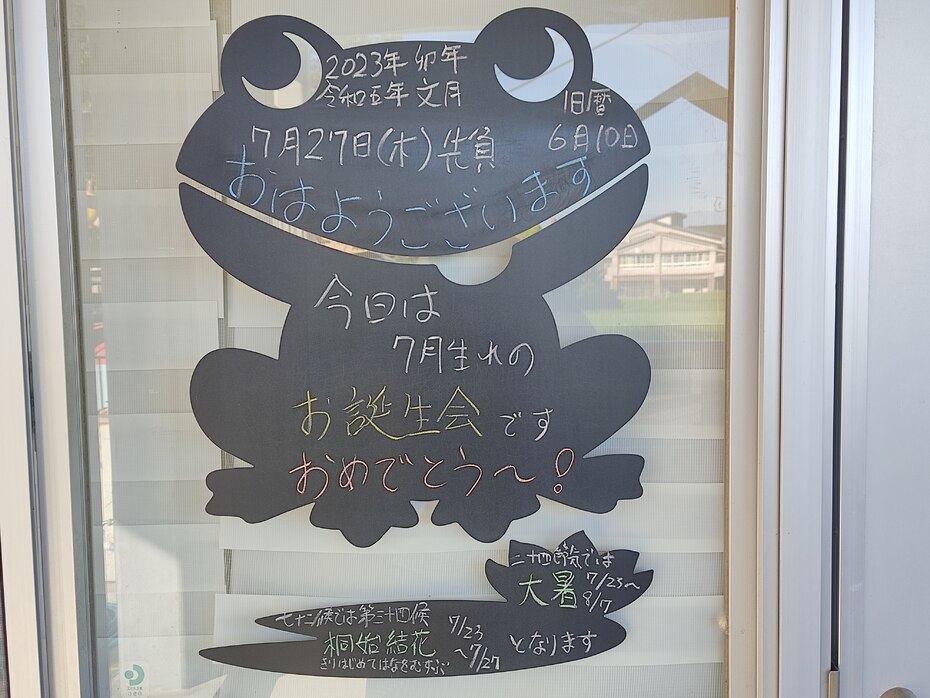 2023年 卯年
令和五年 文月
旧暦
6月10日
7月27日(木) 先負
おはようございます
今日は
7月生れの
お誕生会です
おめでとう〜!
二十四節気では
大暑 7/23〜
8/7
七十二候では第三十四候
桐始結花
きりはじめてはなをむすぶ
7/23
〜7/27
となります